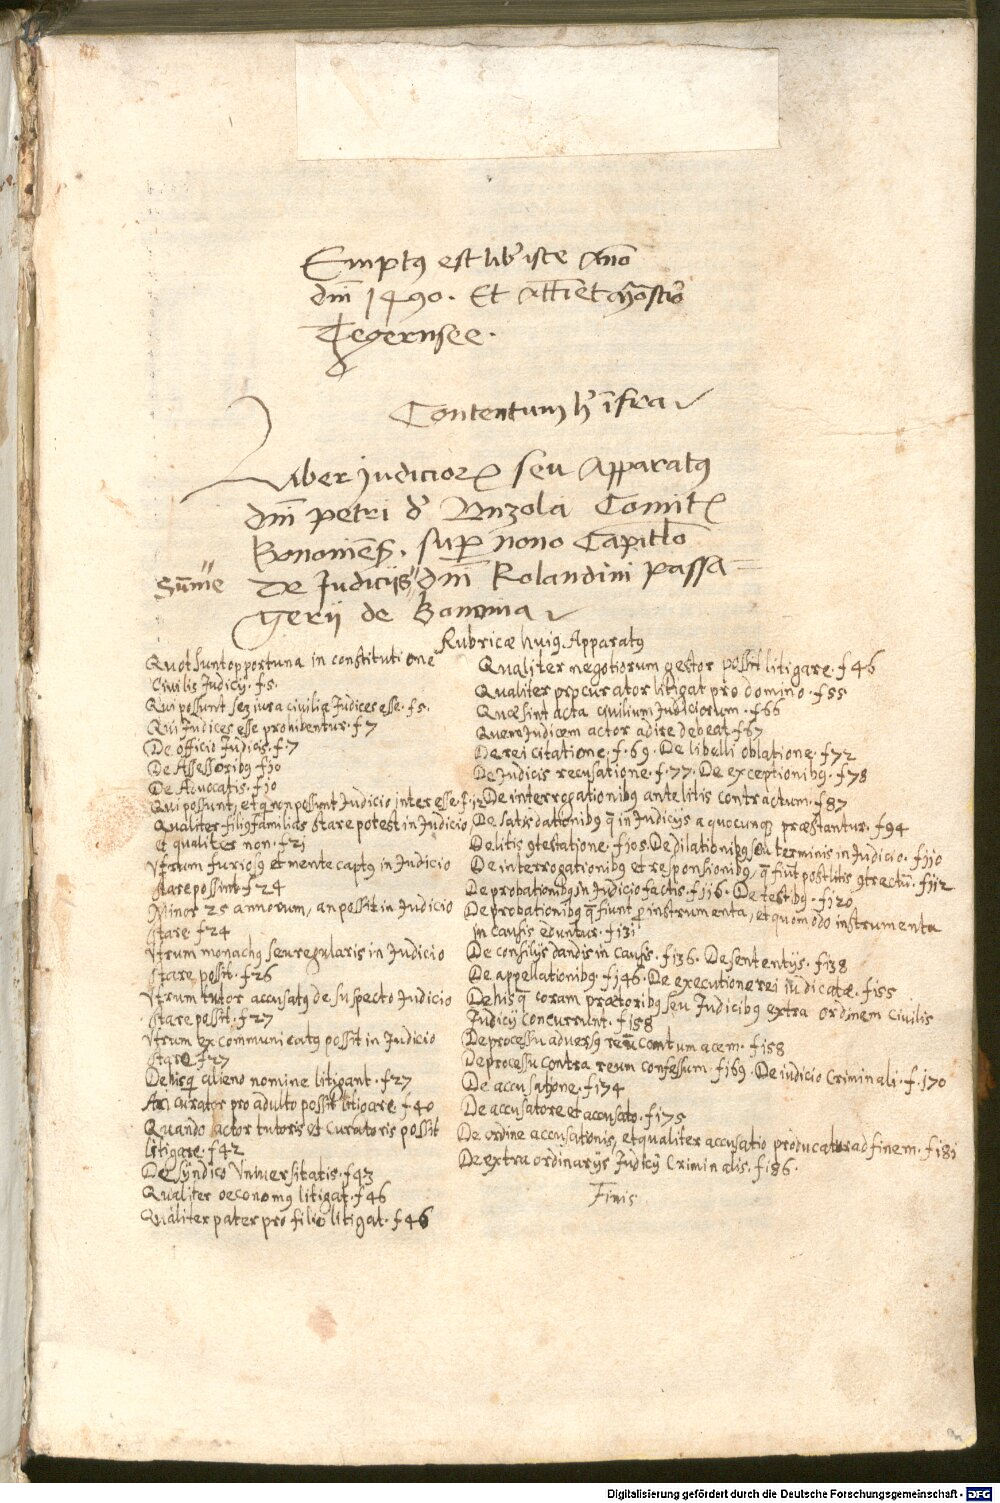 Emptꝰ est libˀ iste Ann̄o
dn̄i 1490. Et Att̄iet Mōstˀio
Tegernsee.
Contentum hˀ īfra
Liber Judicioꝝ seu Apparatꝰ
dn̄i petri dˀ Unzola Comitꝭ
Bononiēs. suꝑ nono Capitl̄o
Sūme De Judicijs dn̄i Rolandini passa=
gerij de Bononia
Rubricæ huiꝰ Apparatꝰ
Quot sunt opportuna in constitutione
Civilis Judicij. f 5.
Qui possunt sec. iura civilia Judices esse. f 5.
Qui Judices esse prohibentur. f 7
De officio Judicis. f. 7
De Assessoribꝰ f 10
De Advocatis. f 10
Qui possunt, et q̄ non possunt Judicio interesse. f. 12
Qualiter filiꝰ familias stare potest in Judicio,
et qualiter non. f 21
Utrum furiosꝰ et mente captꝰ in Judicio
stare possint. f 24
Minor 25 annorum, an possit in Judicio
stare f 24
Utrum monachꝰ seu regularis in Judicio
stare possit. f 26
Utrum tutor accusatꝰ de suspecto Judicio
stare possit. f 27
Utrum excommunicatꝰ possit in Judicio
stare f 27
De hisq̄ alieno nomine litigant. f 27
An curator pro adulto possit litigare. f 40
Quando actor tutoris et Curatoris possit
litigare. f 42
De Syndico Universitatis. f 43
Qualiter oeconomꝰ litigat. f 46
Qualiter pater pro filio litigat. f 46
Qualiter negotiorum gestor possit litigare. f 46
Qualiter procurator litigat pro domino. f 55
Quæ sint acta civilium Judiciorum. f 66
Quem Judicem actor adire debeat f 67
De rei citatione. f. 69. De libelli oblatione. f 72
De Judicis recusatione. f. 77. De exceptionibꝰ. f 78
De interrogationibꝰ ante litis contractum. f 87
De satisdationibꝰ q̄ in Judicijs a quocunqꝫ præstantur. f 94
De litis ꝯtestatione. f 105. De dilationibꝰ seu terminis in Judicio. f 110
De interrogationibꝰ et responsionibꝰ, q̄ fiūt post litis ꝯtractū. f 112
De probationibꝰ in Judicio factis. f 116. De testibꝰ. f 120
De probationibꝰ q̄ fiunt ꝑ instrumenta, et quomodo instrumenta
in causis eduntur. f 131
De consilijs dandis in Causis. f 136. De sententijs. f 138
De appellationibꝰ. f 146. De executione rei iudicatæ. f 155
De hisq̄ coram prætoribꝰ seu Judicibꝰ extra ordinem Civilis
Judicij concurrunt. f 158
De processu adversꝰ reum contumacem. f 158
De processu contra reum confessum. f 169. De iudicio Criminali. f. 170
De accusatione. f 174
De accusatore et accusato. f 175
De ordine accusationis, et qualiter accusatio producatur ad finem. f 181
De extraordinarijs Judicij Criminalis. f 186.
Finis
Digitalisierung gefördert durch die Deutsche Forschungsgemeinschaft - DFG